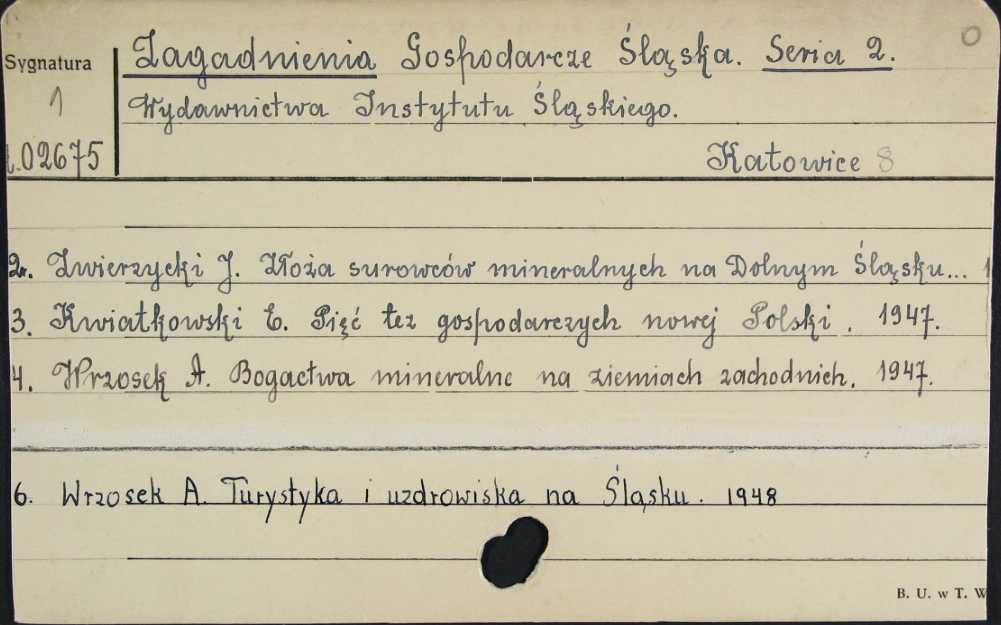 Sygnatura
1
02675
Zagadnienia Gospodarcze Śląska. Seria 2.
Wydawnictwa Instytutu Śląskiego.
Katowice 8
2. Zwierzycki J. Złoża surowców mineralnych na Dolnym Śląsku...
3. Kwiatkowski E. Pięć tez gospodarczych nowej Polski. 1947.
4. Wrzosek A. Bogactwa mineralne na ziemiach zachodnich. 1947.
6. Wrzosek A. Turystyka i uzdrowiska na Śląsku. 1948
B. U. w T.